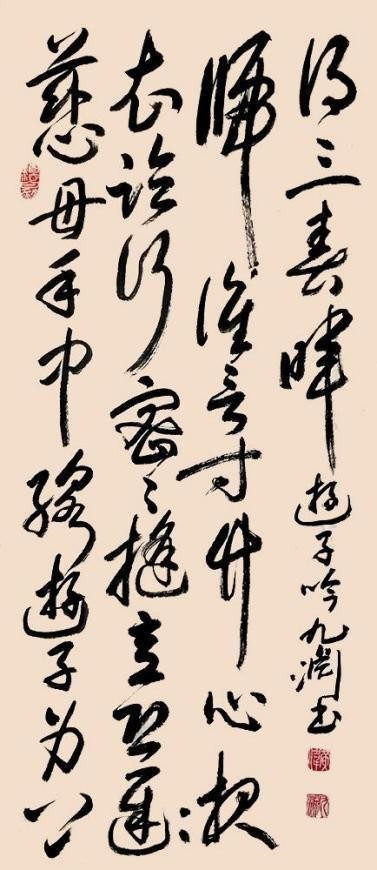 慈母手中線遊子身上
衣臨行密々縫意恐遲々
歸誰言寸草心報
得三春暉 遊子吟九淵书